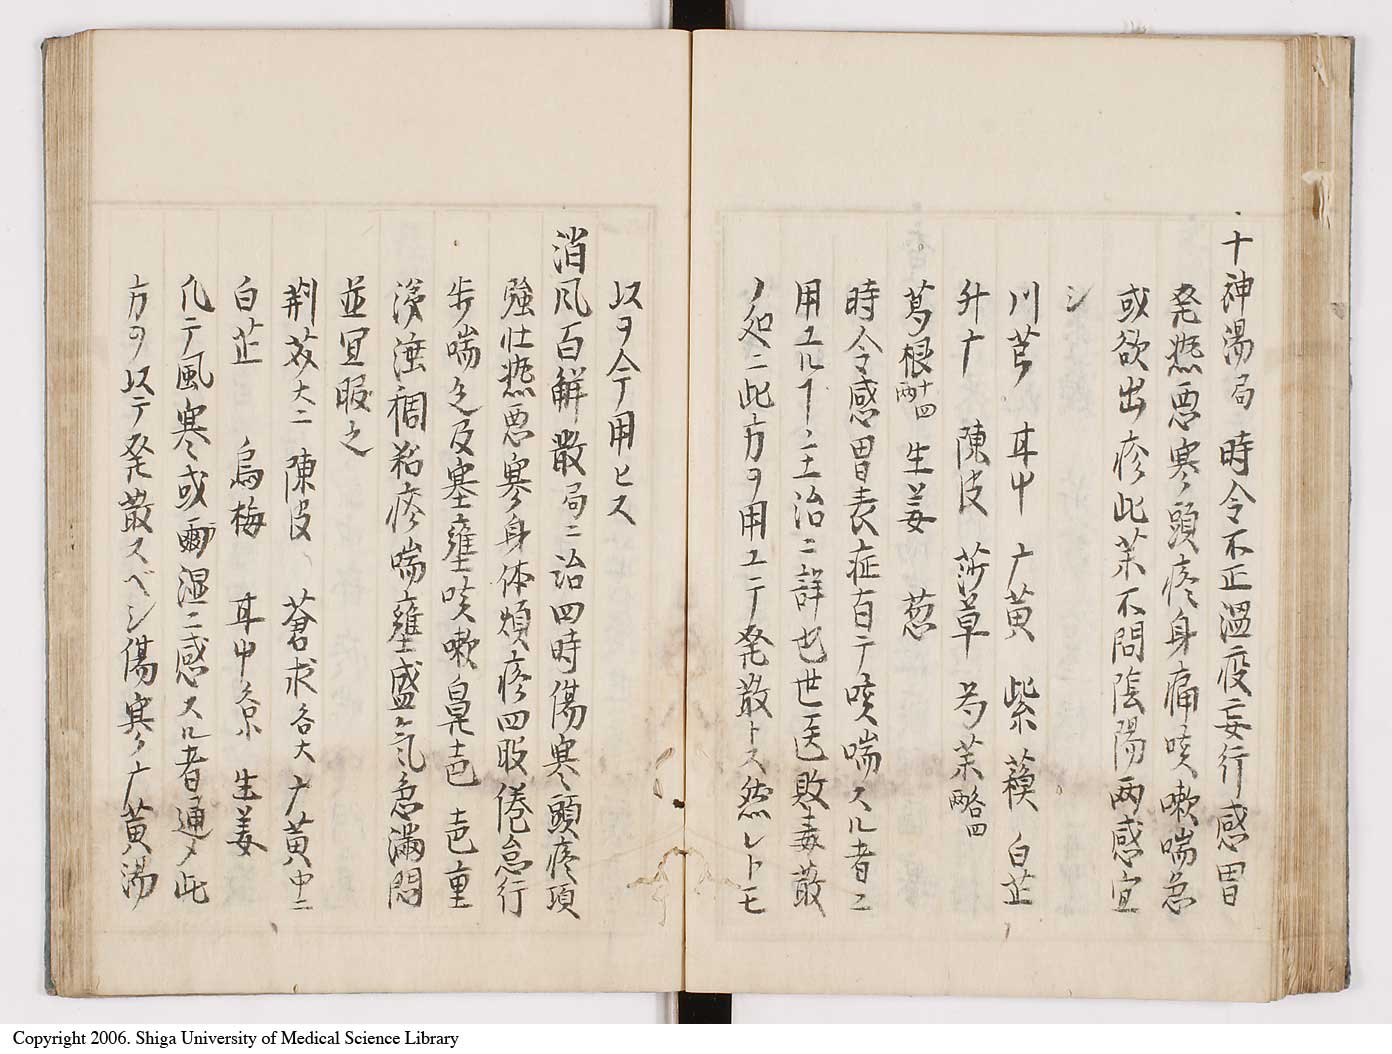 十神湯局 時令不正温疫妄行感冒
発熱悪寒頭疼身痛咳嗽喘急
或欲出疹此薬不問陰陽両感宜
シ
川芎 耳中 广黄 紫蘓 白芷
升广 陳皮 莎草 芍薬略四
葛根十四両 生姜 葱
時令感冒表症有テ咳喘スル者ニ
用ユルヿ主治ニ詳也世医敗毒散
ノ処ニ此方ヲ用ユテ発散トス然レトモ
以ヲ今用ヒス
消风百解散局ニ治四時傷寒頭疼項
強壮熱悪寒身体煩疼四股倦怠行
歩喘乏及塞壅咳嗽鼻𠮷 𠮷重
涕唾稠粘痰喘壅盛気急満悶
並冝暇之
荆芥大二 陳皮 蒼朮各大 广黄中二
白芷 烏梅 耳中各 生姜
凡テ風寒或雨湿ニ感スル者通〆此
方ヲ以テ発散スベシ傷寒广黄湯